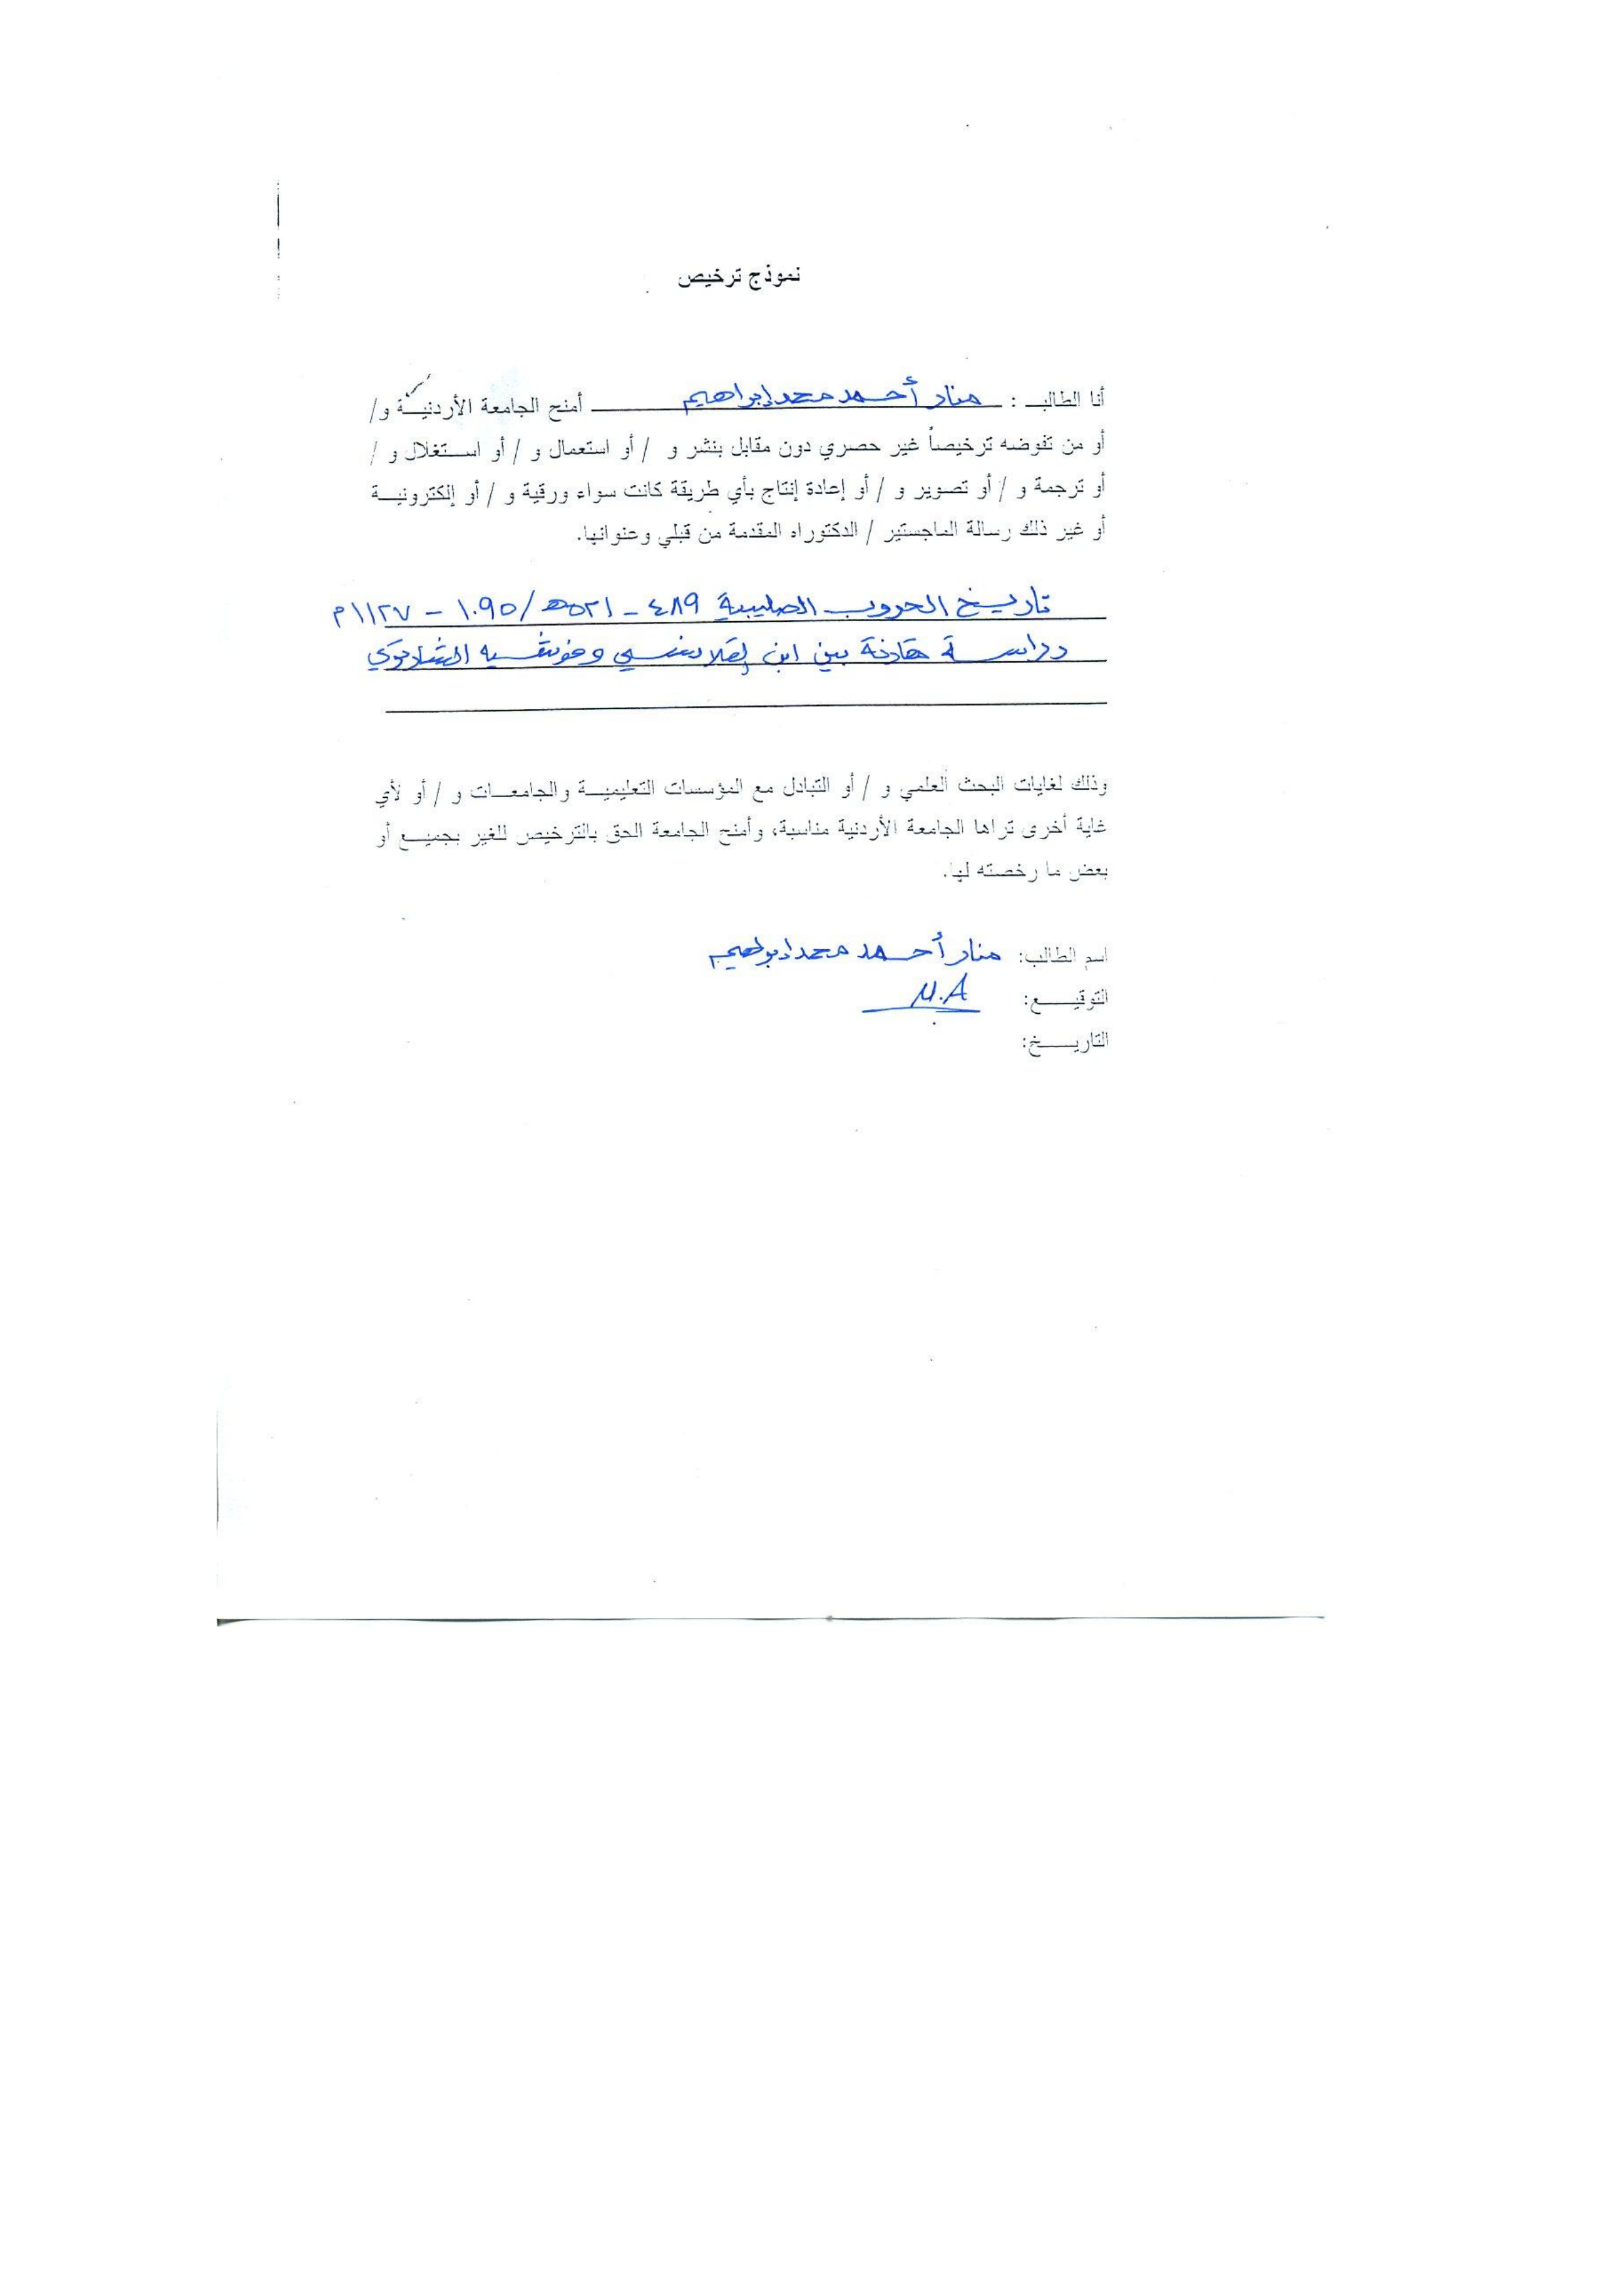 نموذج ترخيص
أنا الطالب : منار أحمد محمد إبراهيم أمنح الجامعة الأردنية و/
أو من تفوضه ترخيصاً غير حصري دون مقابل بنشر و / أو استعمال و / أو استغلال و /
أو ترجمة و / أو تصوير و / أو إعادة إنتاج بأي طريقة كانت سواء ورقية و / أو إلكترونية
أو غير ذلك رسالة الماجستير / الدكتوراه المقدمة من قبلي وعنوانها.
تاريخ الحروب الصليبية ٤٨٩ - ٥٢١هـ/١٠٩٥ - ١١٢٧م
دراسة مقارنة بين ابن القلانسي وفوشيه الشارتري
وذلك لغايات البحث العلمي و / أو التبادل مع المؤسسات التعليمية والجامعات و / أو لأي
غاية أخرى تراها الجامعة الأردنية مناسبة، وأمنح الجامعة الحق بالترخيص للغير بجميع أو
بعض ما رخصته لها.
اسم الطالب: منار أحمد محمد ابراهيم
التوقيع: M.A
التاريخ: